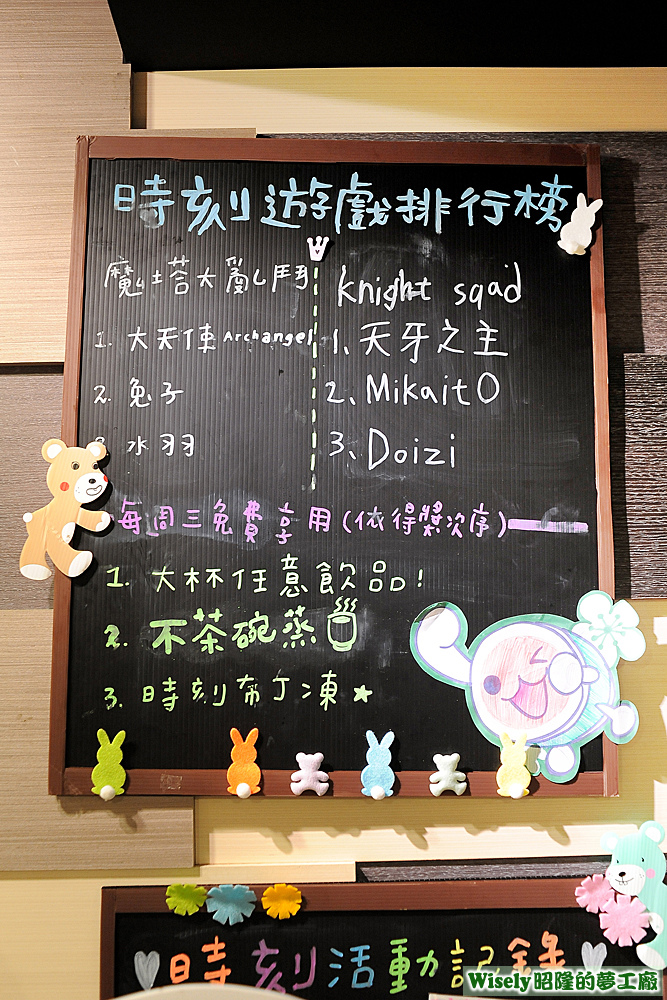 時刻遊戲排行榜
魔塔大亂鬥
1. 大天使 Archangel
2. 兔子
3. 水羽
Knight sqad
1、天牙之主
2、MikaitO
3、Doizi
每周三免費享用(依得獎次序)
1. 大杯任意飲品!
2. 不茶碗蒸
3. 時刻布丁凍★
時刻活動記錄
Wisely昭隆的夢工廠